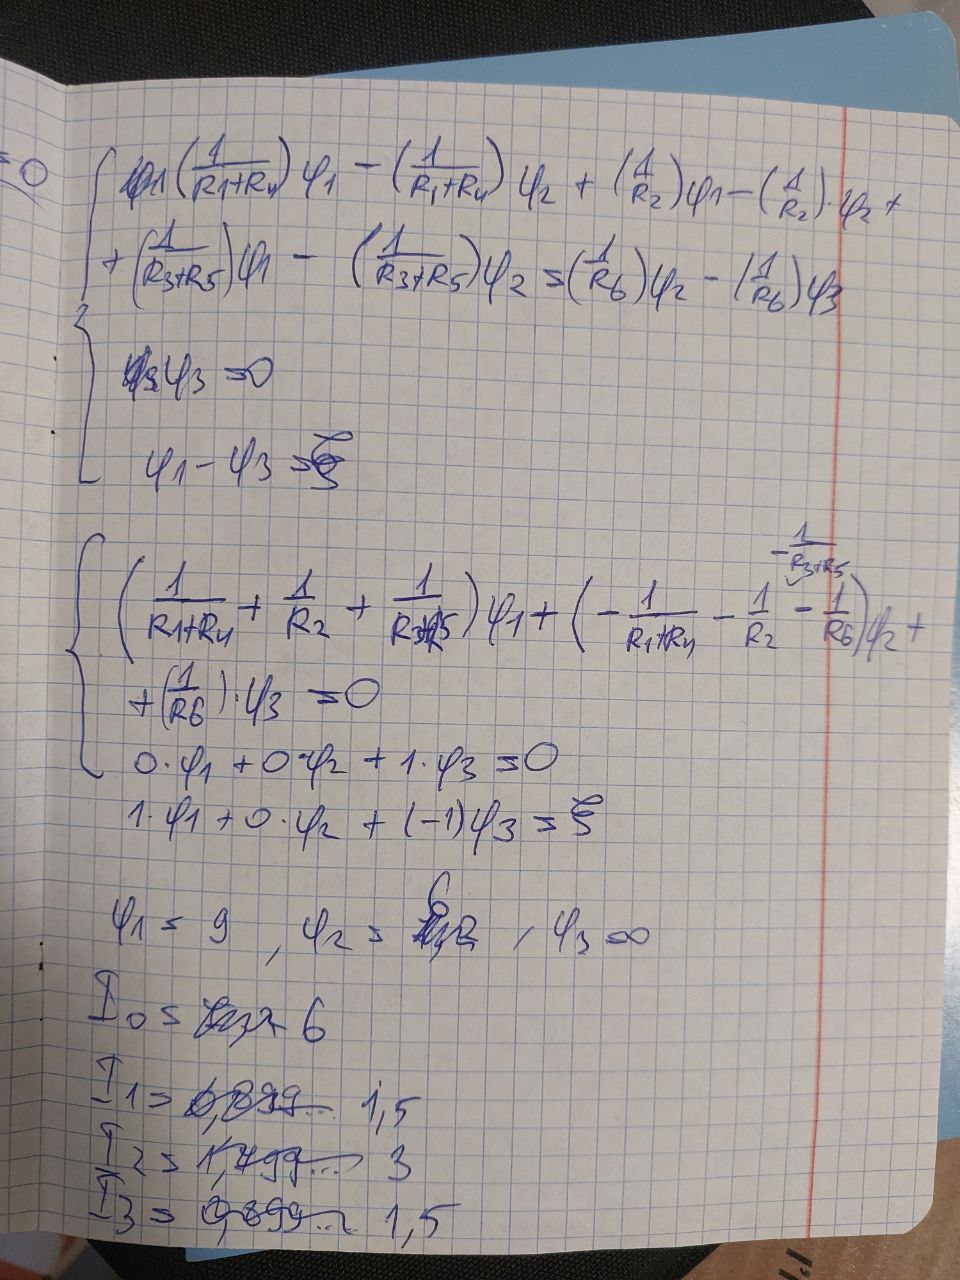 = 0
(1/(R1+R4)) φ1 − (1/(R1+R4)) φ2 + (1/R2) φ1 − (1/R2)·φ2 +
+ (1/(R3+R5)) φ1 − (1/(R3+R5)) φ2 = (1/R6) φ2 − (1/R6) φ3
φ3 = 0
φ1 − φ3 = ξ
− 1/(R3+R5)
(1/(R1+R4) + 1/R2 + 1/(R3+R5)) φ1 + (− 1/(R1+R4) − 1/R2 − 1/R6) φ2 +
+ (1/R6)·φ3 = 0
0·φ1 + 0·φ2 + 1·φ3 = 0
1·φ1 + 0·φ2 + (−1)φ3 = ξ
φ1 = 9 , φ2 = 6 , φ3 = 0
I0 = 6
I1 = 0,899... 1,5
I2 = 1,799... 3
I3 = 0,899... 1,5